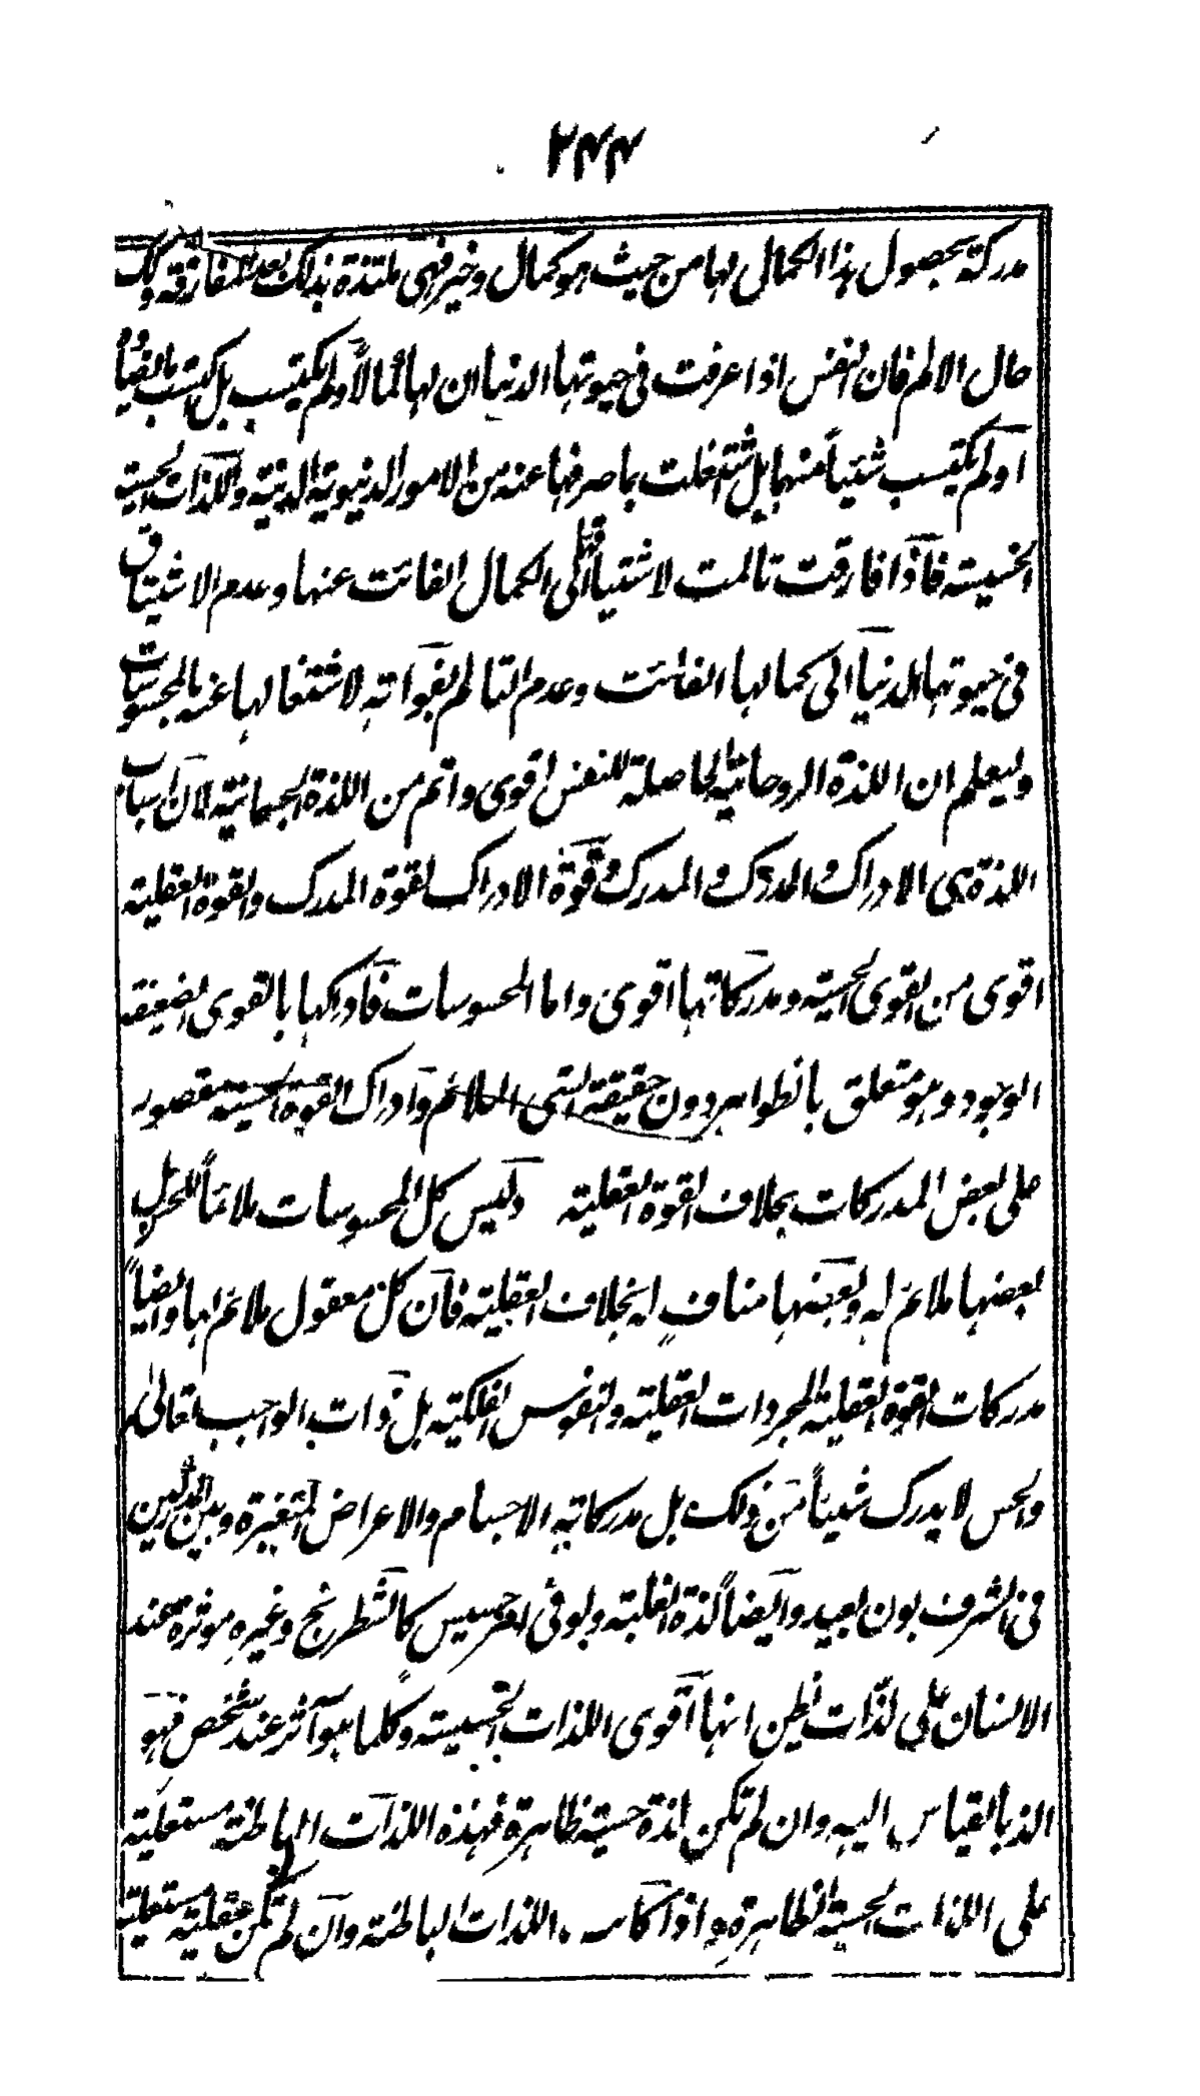 ٢٤٤
مدركة بحصول هذا الكمال لها من حيث هو كمال وخير فهى ملتذة بذلك بعد المفارقة وكذلك
حال الالم فان النفس اذا عرفت فى حيوتها الدنيا ان لها كمالاً ولم يكتسب بل اكتسب
اولم يكتسب شيئاً منهما بل اشتغلت بما صرفها عنه من الامور الدنيوية الدنية واللذات الحسية
الخسيسة فاذا فارقت تالمت لاشتياقها الى الكمال الفائت عنها وعدم الاشتياق
فى حيوتها الدنيا الى كمالها الفائت وعدم التالم بفواته لاشتغالها عنه بالمحسوسات
وليعلم ان اللذة الروحانية الحاصلة للنفس اقوى واتم من اللذة الجسمانية لان اسباب
اللذة هى الادراك والمدرك والمدرك وقوة الادراك لقوة المدرك والقوة العقلية
اقوى من القوى الحسية ومدركاتها اقوى واما المحسوسات فادراكها بالقوى الضعيفة
الوجود وهو متعلق بالظواهر دون حقيقة الشى الملائم وادراك القوة الحسية مقصور
على بعض المدركات بخلاف القوة العقلية وليس كل المحسوسات ملائماً للحس بل
بعضها ملائم له وبعضها مناف له بخلاف العقلية فان كل معقول ملائم لها وايضاً
مدركات القوة العقلية المجردات العقلية والنفوس الفلكية بل ذات الواجب تعالىٰ
والحس لا يدرك شيئاً من ذلك بل مدركاته الاجسام والاعراض المتغيرة وبين المدركين
فى الشرف بون بعيد وايضاً لذة الغلبة ولو فى امر خسيس كالشطرنج وغيره موثرة عند
الانسان على لذات يظن انها اقوى اللذات الحسية وكلما هو آثر عند شخص فهو
الذ بالقياس اليه وان لم تكن لذة حسية ظاهرة فهذه اللذات الباطنة مستعلية
على اللذات الحسية الظاهرة واذا كانت اللذات الباطنة وان لم تكن عقلية مستعلية